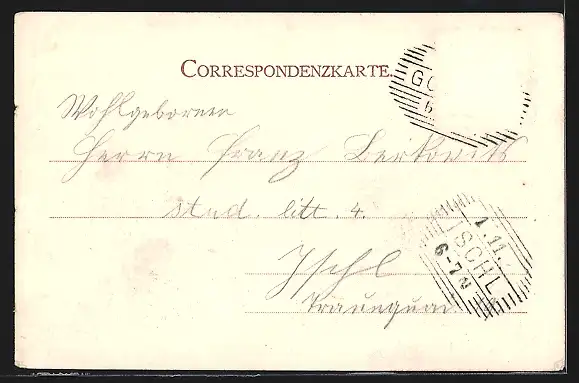 CORRESPONDENZKARTE.
GO
6
Wohlgebornen
Herrn Franz Berkovits
stud. litt. 4.
Ischl
Traunquai
1.11.
ISCHL
6-7N